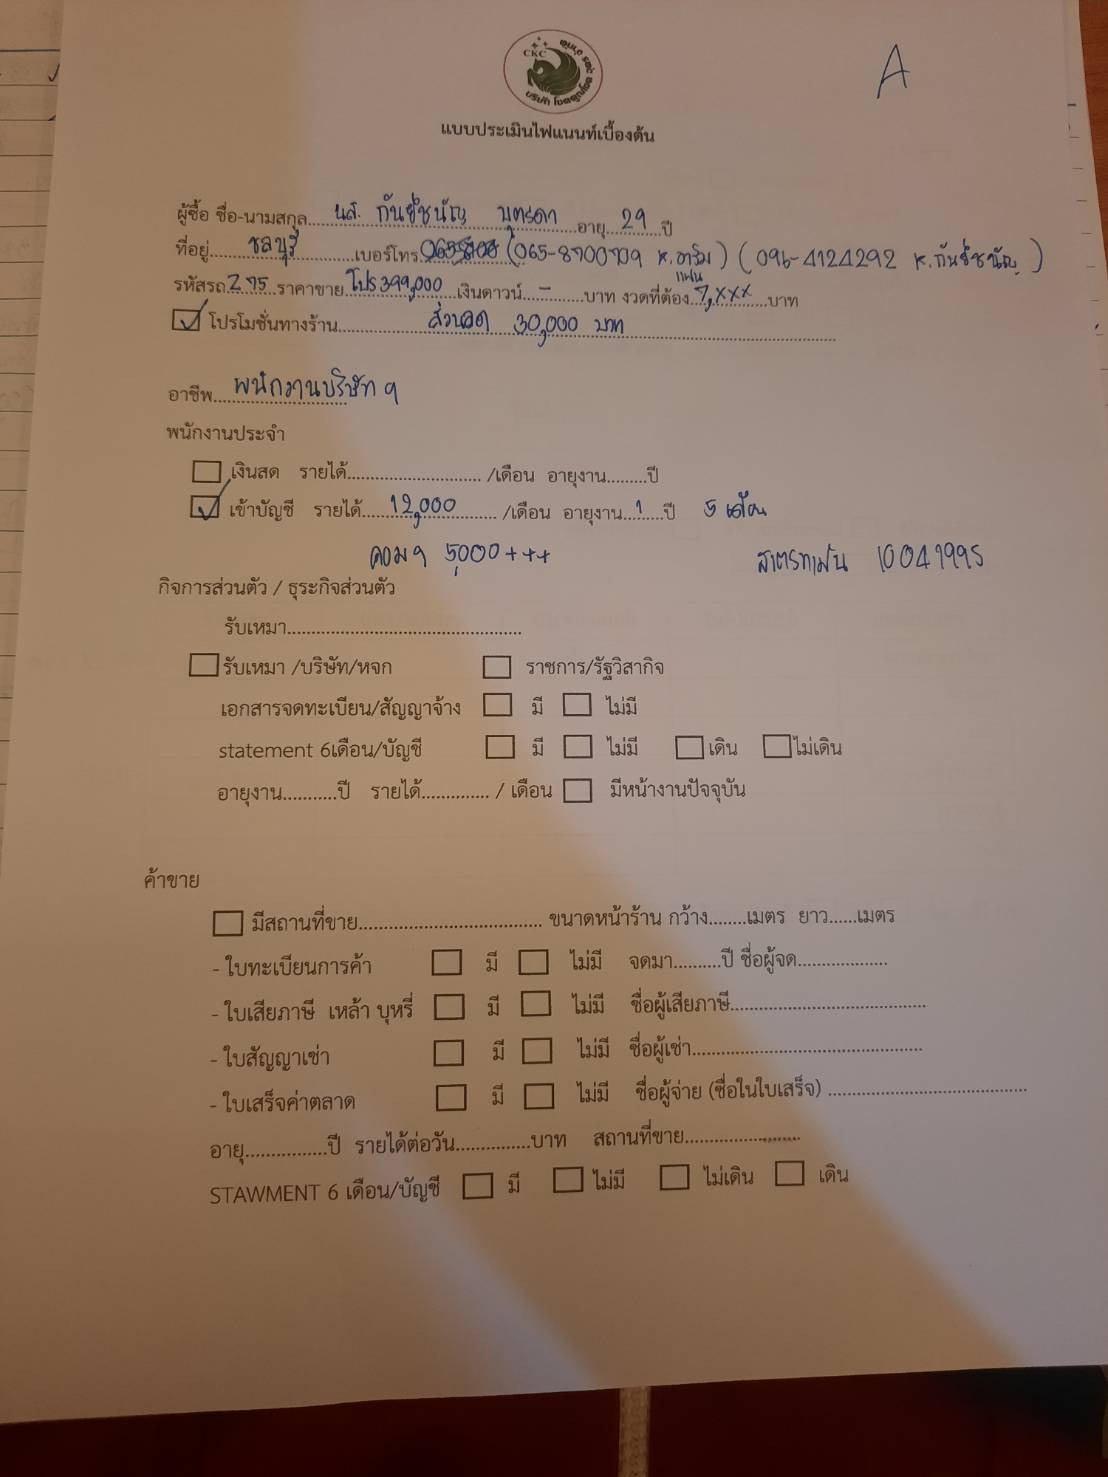 CKC
A
แบบประเมินไฟแนนท์เบื้องต้น
ผู้ซื้อ ชื่อ-นามสกุล....นส. กันย์ชนัญ บุตรดา....อายุ..29..ปี
ที่อยู่....ชลบุรี....เบอร์โทร. (065-8700709 ค.อาริม) (096-4124292 ค.กันย์ชนัญ)
แฟน
รหัสรถ.Z 75..ราคาขาย.โปร 399,000..เงินดาวน์...-....บาท งวดที่ต้อง..7,xxx...บาท
โปรโมชั่นทางร้าน....ส่วนลด 30,000 บาท
อาชีพ..พนักงานบริษัทฯ
พนักงานประจำ
เงินสด รายได้........................../เดือน อายุงาน.........ปี
เข้าบัญชี รายได้.....12,000......../เดือน อายุงาน..1....ปี 5 เดือน
คอมฯ 5,000+++ 10041995
กิจการส่วนตัว / ธุระกิจส่วนตัว
รับเหมา................................................
รับเหมา /บริษัท/หจก ราชการ/รัฐวิสากิจ
เอกสารจดทะเบียน/สัญญาจ้าง มี ไม่มี
statement 6เดือน/บัญชี มี ไม่มี เดิน ไม่เดิน
อายุงาน...........ปี รายได้.............. / เดือน มีหน้างานปัจจุบัน
ค้าขาย
มีสถานที่ขาย..................................... ขนาดหน้าร้าน กว้าง........เมตร ยาว......เมตร
- ใบทะเบียนการค้า มี ไม่มี จดมา..........ปี ชื่อผู้จด...................
- ใบเสียภาษี เหล้า บุหรี่ มี ไม่มี ชื่อผู้เสียภาษี........................................
- ใบสัญญาเช่า มี ไม่มี ชื่อผู้เช่า................................................
- ใบเสร็จค่าตลาด มี ไม่มี ชื่อผู้จ่าย (ชื่อในใบเสร็จ) .........................................
อายุ.................ปี รายได้ต่อวัน...............บาท สถานที่ขาย........................
STAWMENT 6 เดือน/บัญชี มี ไม่มี ไม่เดิน เดิน